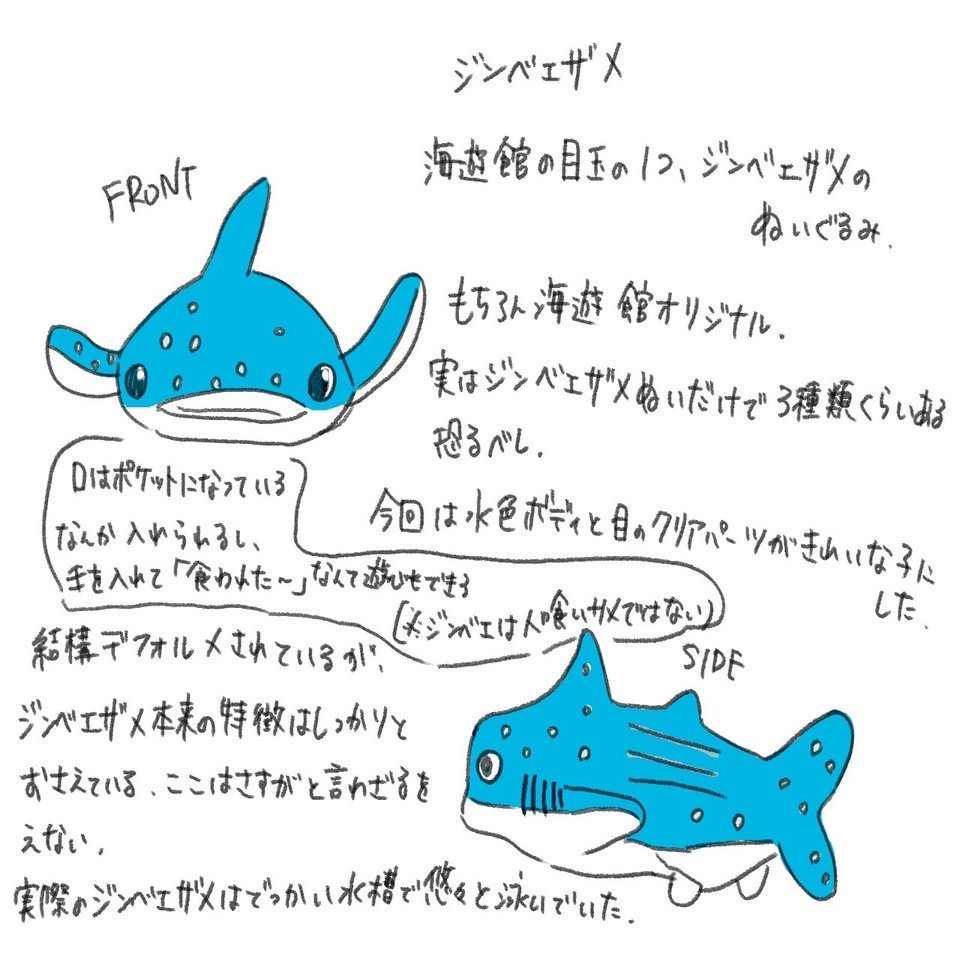 ジンベエザメ
海遊館の目玉の1つ、ジンベエザメの
ぬいぐるみ.
FRONT
もちろん海遊館オリジナル.
実はジンベエザメぬいだけで3種類くらいある
恐るべし.
今回は水色ボディと目のクリアパーツがきれいな子に
した.
口はポケットになっている
なんか入れられるし、
手を入れて「食われた〜」なんて遊びもできる
(※ジンベエは人喰いサメではない)
SIDE
結構デフォルメされているが、
ジンベエザメ本来の特徴はしっかりと
おさえている.ここはさすがと言わざるを
えない.
実際のジンベエザメはでっかい水槽で悠々と泳いでいた.